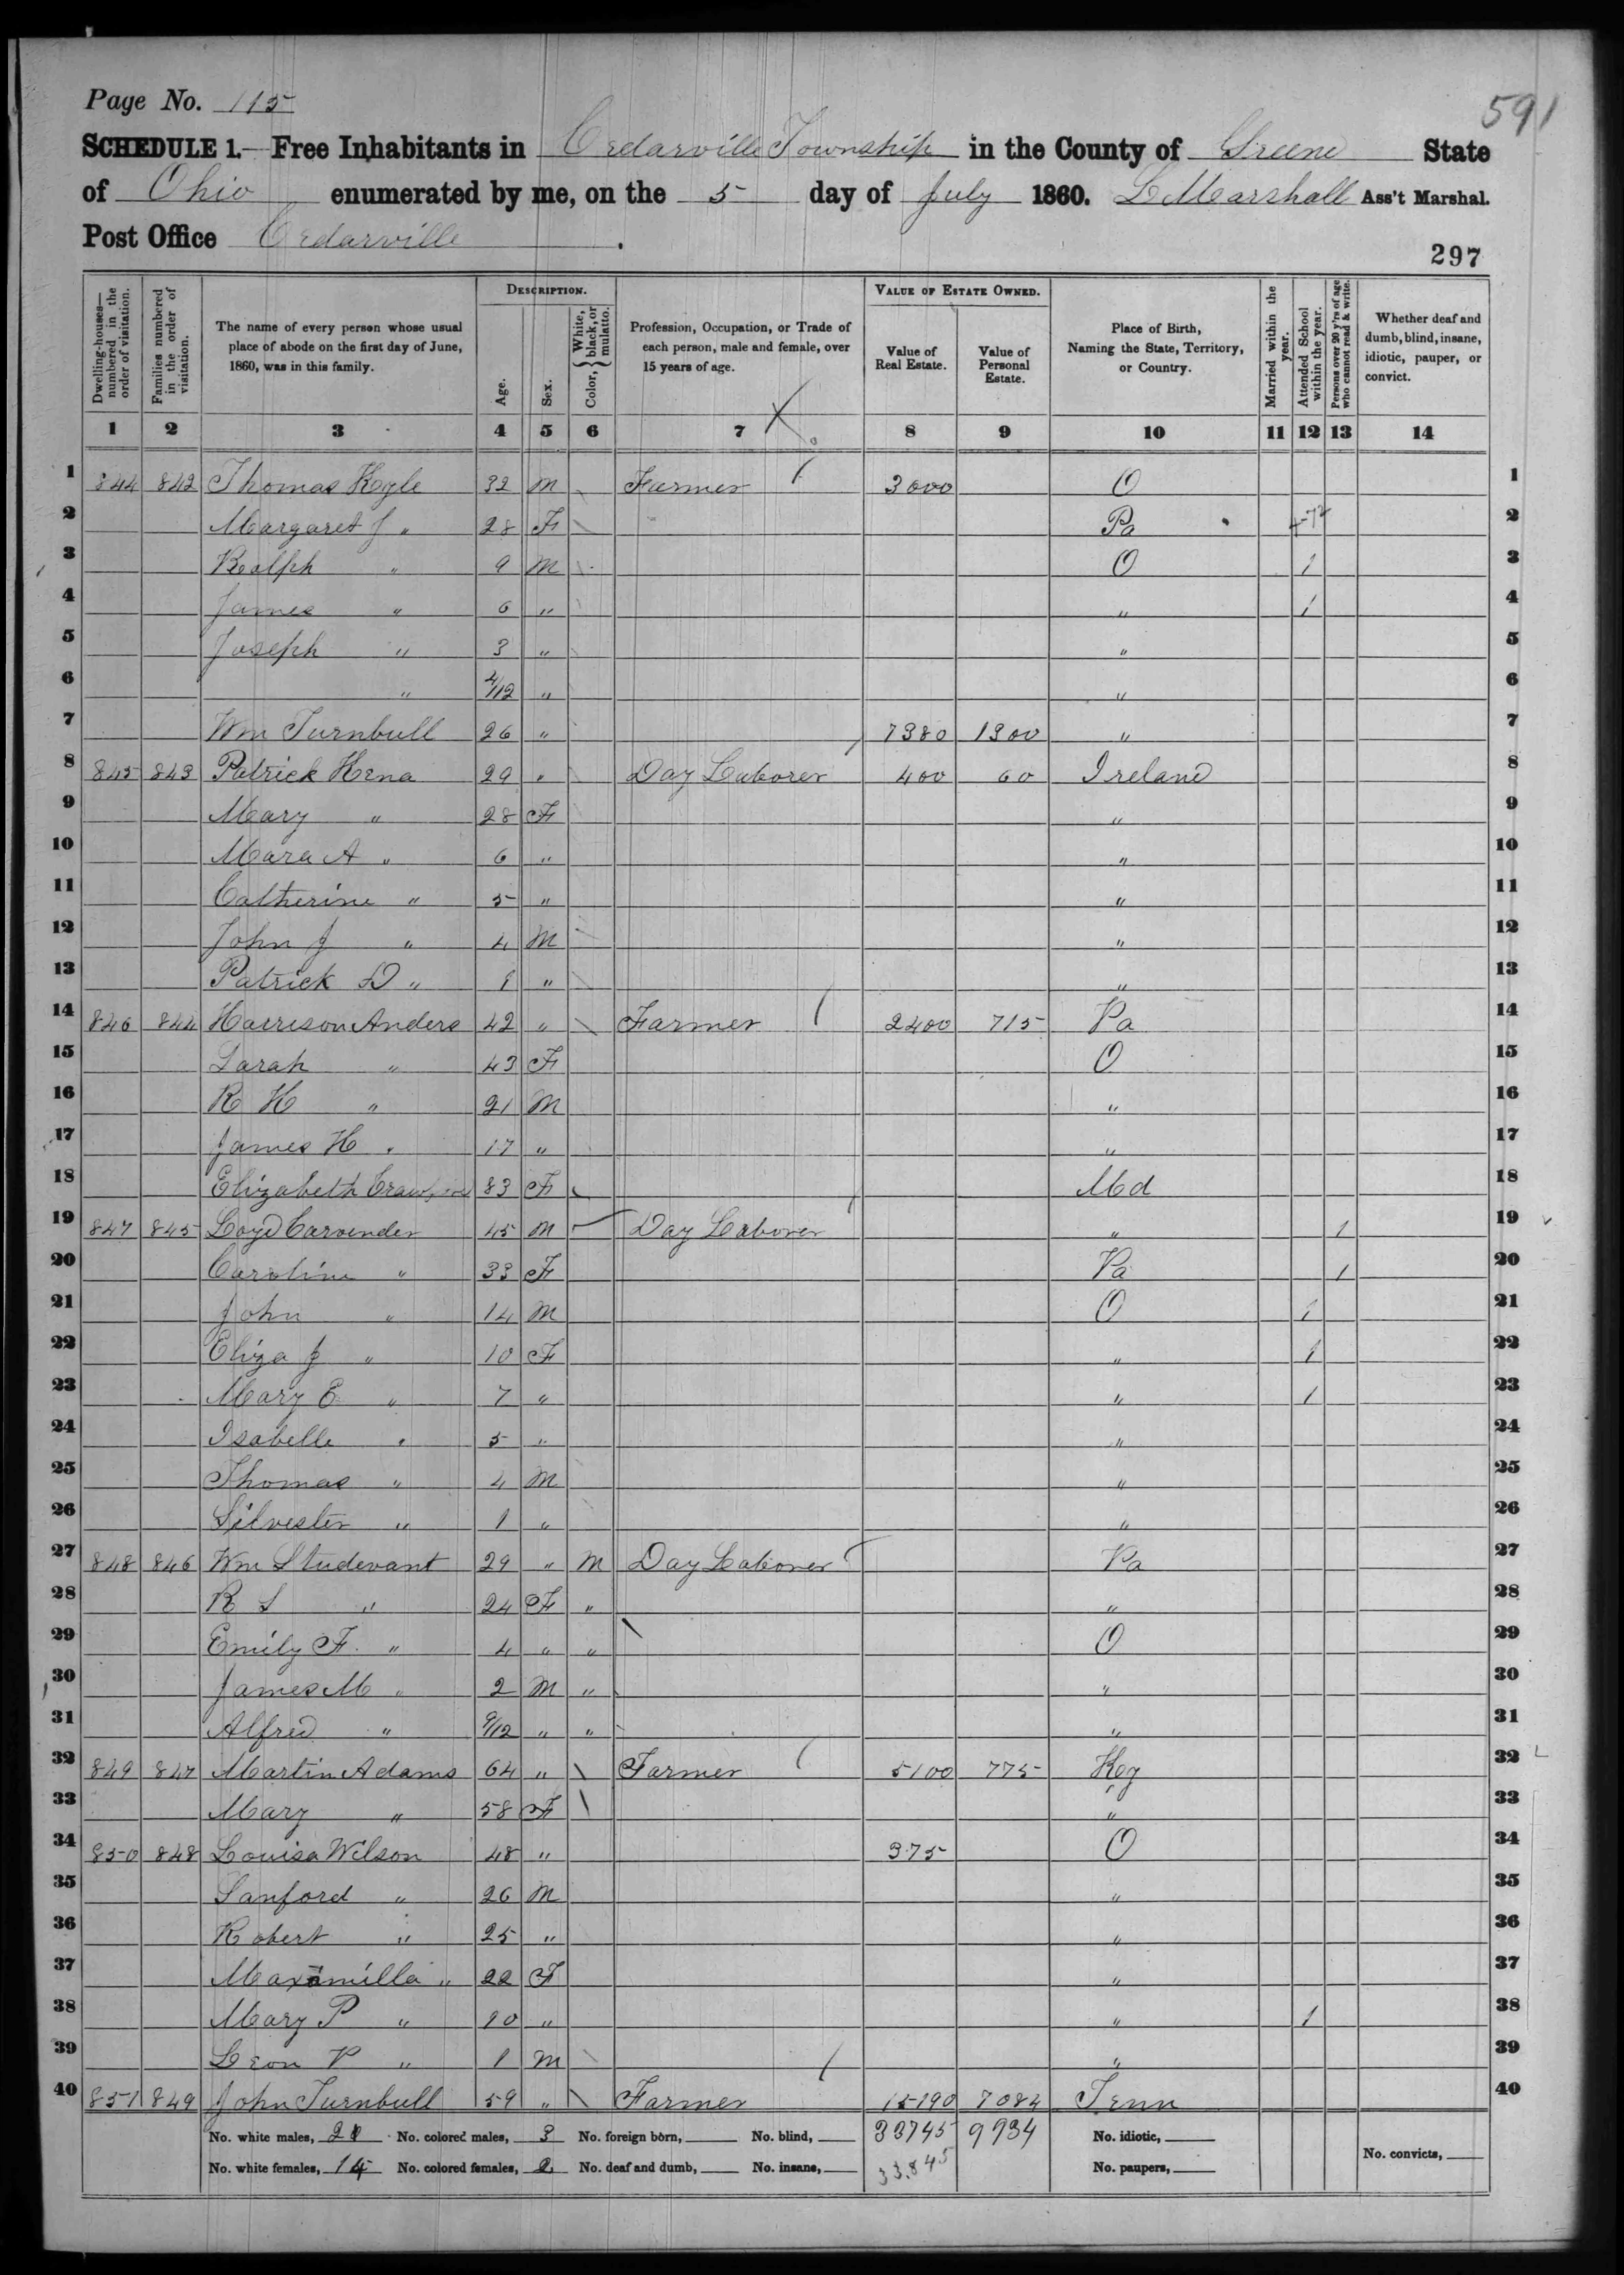 Page No. 115
591
SCHEDULE 1.—Free Inhabitants in Cedarville Township in the County of Greene State
of Ohio enumerated by me, on the 5 day of July 1860. L Marshall Ass't Marshal.
Post Office Cedarville.
297
Dwelling-houses—numbered in the order of visitation.
Families numbered in the order of visitation.
The name of every person whose usual place of abode on the first day of June, 1860, was in this family.
DESCRIPTION.
Age.
Sex.
Color, { White, black, or mulatto.
Profession, Occupation, or Trade of each person, male and female, over 15 years of age.
VALUE OF ESTATE OWNED.
Value of Real Estate.
Value of Personal Estate.
Place of Birth, Naming the State, Territory, or Country.
Married within the year.
Attended School within the year.
Persons over 20 y'rs of age who cannot read & write.
Whether deaf and dumb, blind, insane, idiotic, pauper, or convict.
1 2 3 4 5 6 7 8 9 10 11 12 13 14
1 844 842 Thomas Kyle 32 M Farmer 3000 O 1
2 Margaret J " 28 F Pa 2
3 Ralph " 9 M O 1 3
4 James " 6 " " 1 4
5 Joseph " 3 " " 5
6 " 4/12 " " 6
7 Wm Turnbull 26 " 7380 1300 " 7
8 845 843 Patrick Hena 29 " Day Laborer 400 60 Ireland 8
9 Mary " 28 F " 9
10 Mara A " 6 " " 10
11 Catherine " 5 " " 11
12 John J " 4 M " 12
13 Patrick D " 1 " " 13
14 846 844 Harrison Anders 42 " Farmer 2400 715 Pa 14
15 Sarah " 43 F O 15
16 R H " 21 M " 16
17 James H " 17 " " 17
18 Elizabeth 83 F Md 18
19 847 845 Loyd Carvender 45 M Day Laborer " 1 19
20 Caroline " 33 F Pa 1 20
21 John " 14 M O 1 21
22 Eliza J " 10 F " 1 22
23 Mary E " 7 " " 1 23
24 Isabelle " 5 " " 24
25 Thomas " 4 M " 25
26 Silvester " 1 " " 26
27 848 846 Wm Studevant 29 " M Day Laborer Pa 27
28 R S " 24 F " " 28
29 Emily F. " 4 " " O 29
30 James M " 2 M " " 30
31 Alfred " 9/12 " " " 31
32 849 847 Martin Adams 64 " Farmer 5100 775 Key 32
33 Mary " 58 F " 33
34 850 848 Louisa Wilson 48 " 375 O 34
35 Sanford " 26 M " 35
36 Robert " 25 " " 36
37 Maxamilla " 22 F " 37
38 Mary P " 10 " " 1 38
39 Leon P " 1 M " 39
40 851 849 John Turnbull 59 " Farmer 15190 7084 Tenn 40
No. white males, No. colored males, 3 No. foreign born, No. blind, 33745 9934 No. idiotic,
No. white females, 14 No. colored females, 2 No. deaf and dumb, No. insane, 33,845 No. paupers, No. convicts,